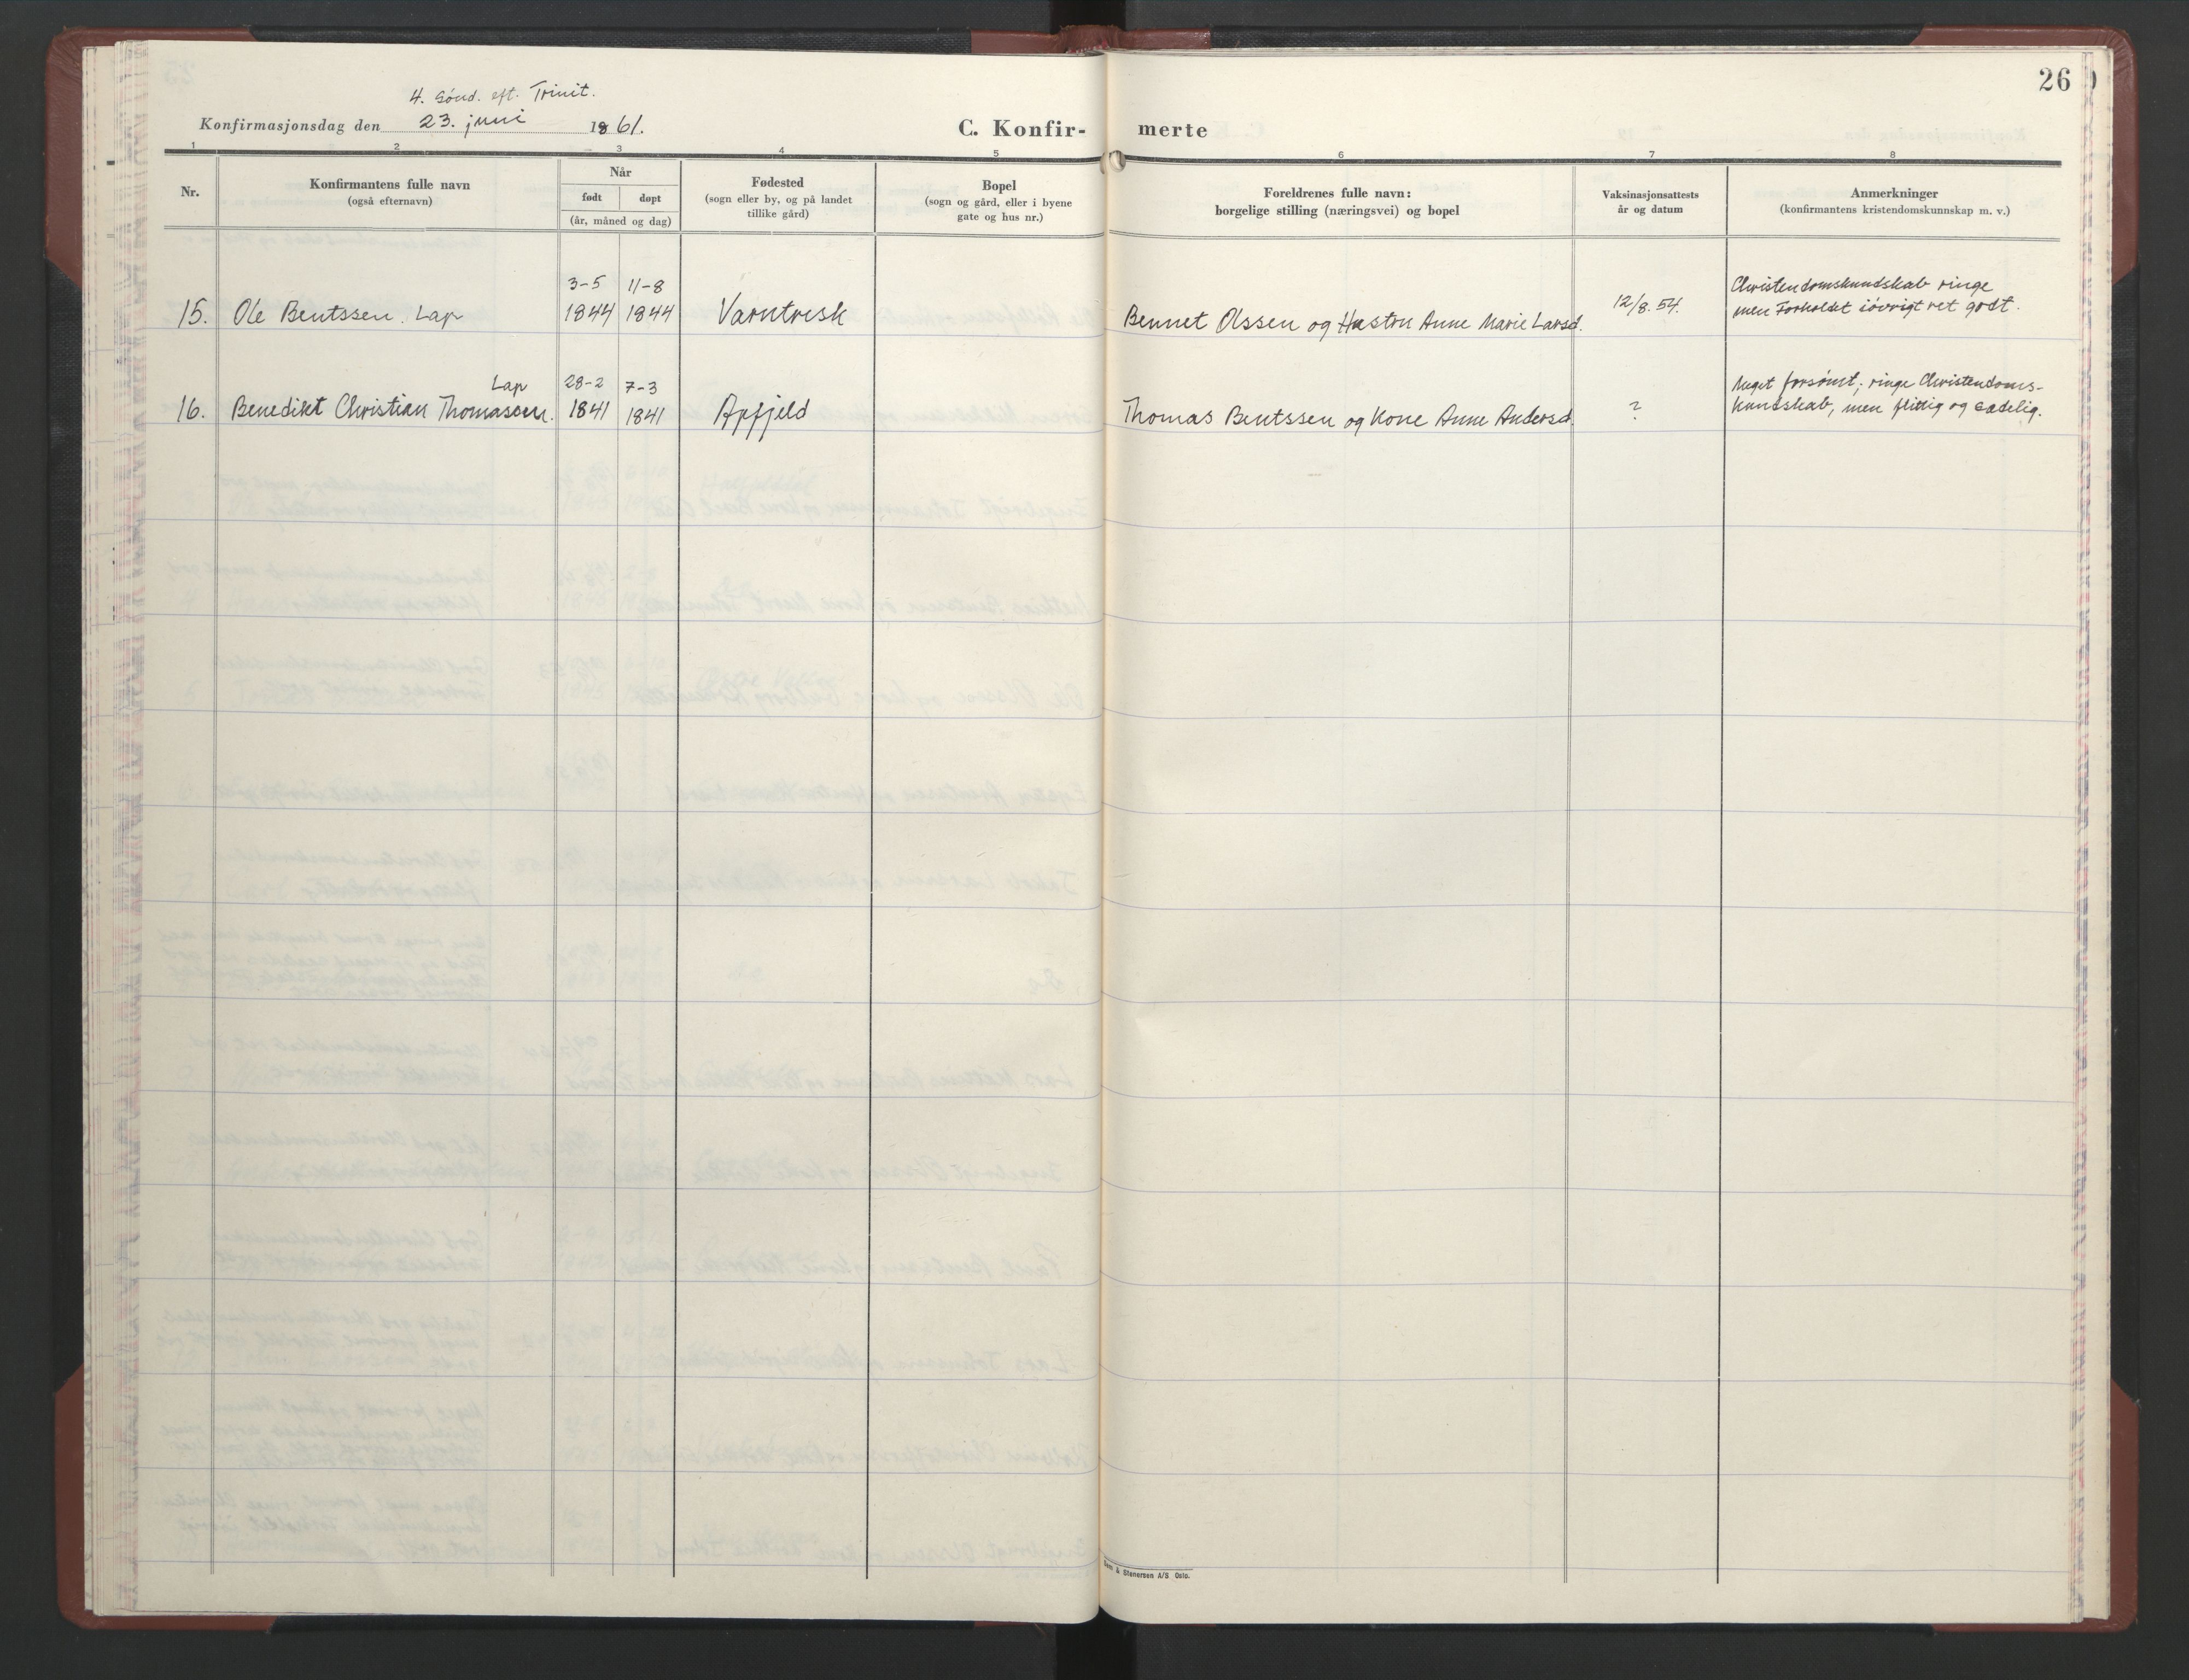 26
4. Sønd. eft. Trinit.
Konfirmasjonsdag den 23. juni 1861.
C. Konfir- merte
1 2 3 4 5 6 7 8
Nr.
Konfirmantens fulle navn
(også efternavn)
Når
født døpt
(år, måned og dag)
Fødested
(sogn eller by, og på landet
tillike gård)
Bopel
(sogn og gård, eller i byene
gate og hus nr.)
Foreldrenes fulle navn:
borgelige stilling (næringsvei) og bopel
Vaksinasjonsattests
år og datum
Anmerkninger
(konfirmantens kristendomskunnskap m. v.)
3-5 11-8 Christendomskundskab ringe
15. Ole Bentssen. Lap 1844 1844 Varntresk Bennet Olssen og Hustru Anne Marie Larsd. 12/8.54. men Forholdet iövrigt ret godt.
Lap 28-2 7-3 Meget forsömt; ringe Christendoms-
16. Benedikt Christian Thomassen. 1841 1841 Apfjeld Thomas Bentssen og Kone Anne Andersd. ? kundskab, men flittig og sædelig.
& Stenersen A/S Oslo.